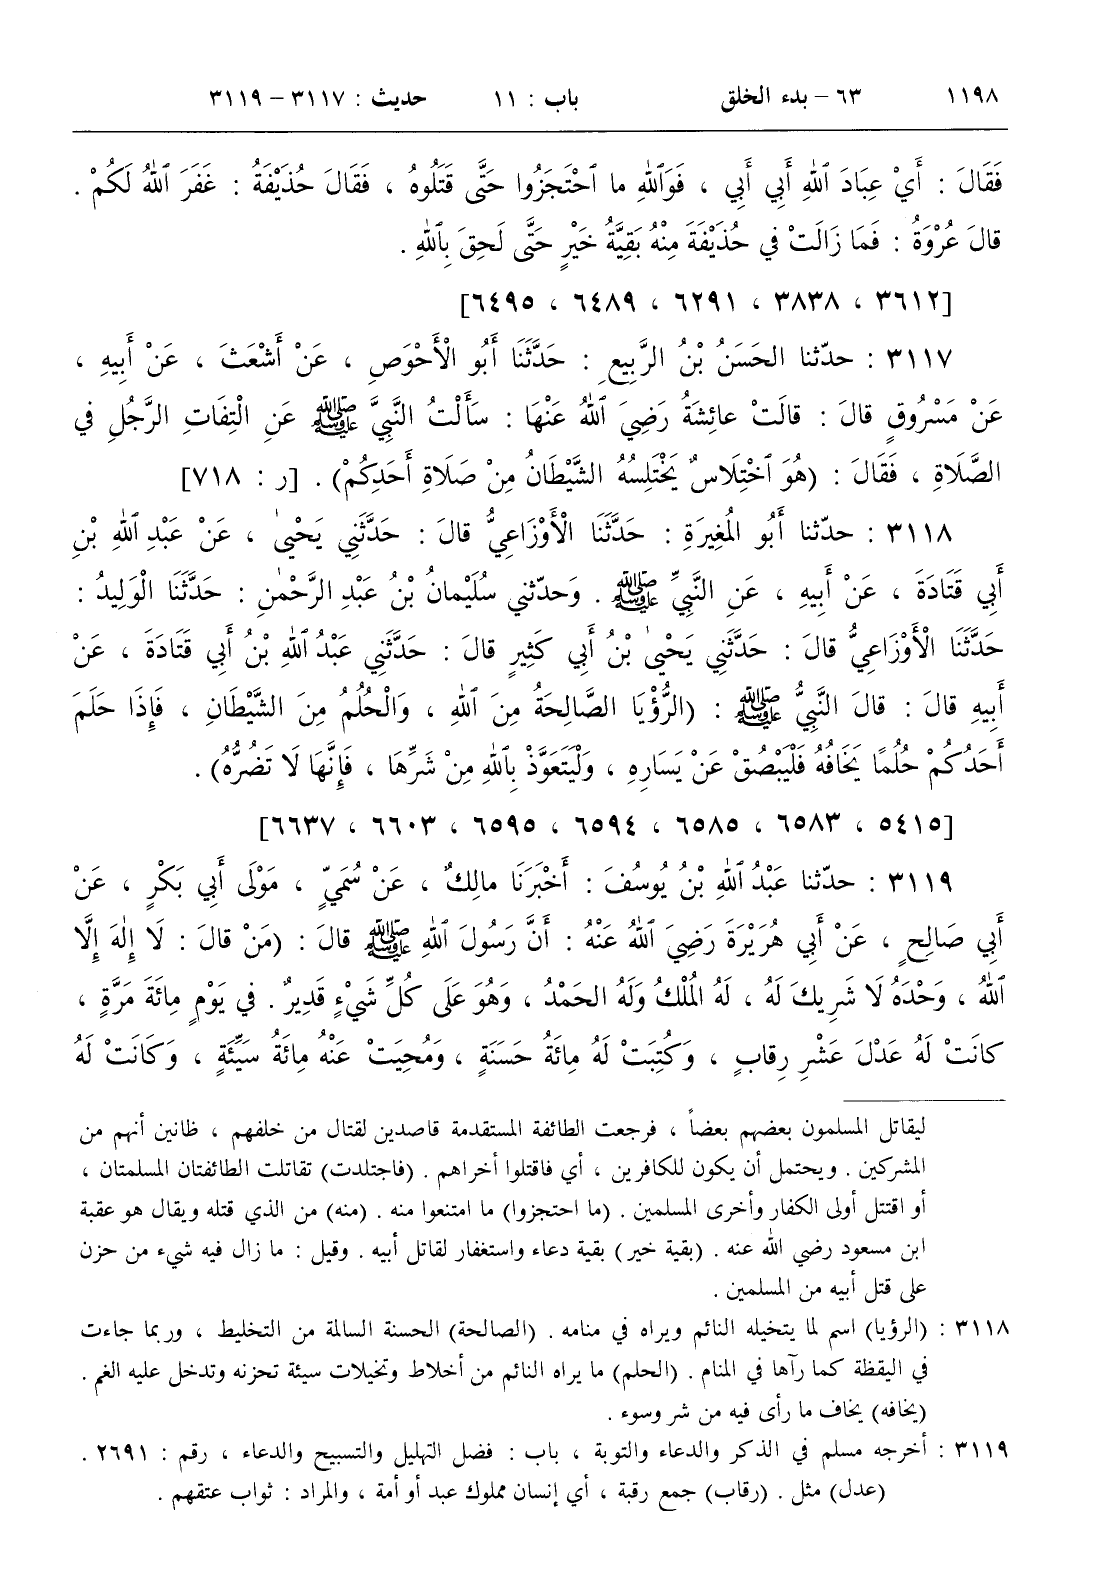 ١١٩٨ ٦٣ – بدء الخلق باب : ١١ حديث : ٣١١٧ – ٣١١٩
فَقَالَ : أَيْ عِبَادَ ٱللهِ أَبِي أَبِي ، فَوَٱللهِ ما ٱحْتَجَزُوا حَتَّى قَتَلُوهُ ، فَقَالَ حُذَيْفَةُ : غَفَرَ ٱللهُ لَكُمْ .
قالَ عُرْوَةُ : فَمَا زَالَتْ في حُذَيْفَةَ مِنْهُ بَقِيَّةُ خَيْرٍ حَتَّى لَحِقَ بِٱللهِ .
[٣٦١٢ ، ٣٨٣٨ ، ٦٢٩١ ، ٦٤٨٩ ، ٦٤٩٥]
٣١١٧ : حدّثنا الحَسَنُ بْنُ الرَّبِيعِ : حَدَّثَنَا أَبُو الْأَحْوَصِ ، عَنْ أَشْعَثَ ، عَنْ أَبِيهِ ،
عَنْ مَسْرُوقٍ قالَ : قالَتْ عائِشَةُ رَضِيَ ٱللهُ عَنْهَا : سَأَلْتُ النَّبِيَّ ﷺ عَنِ الْتِفَاتِ الرَّجُلِ في
الصَّلَاةِ ، فَقَالَ : (هُوَ ٱخْتِلَاسٌ يَخْتَلِسُهُ الشَّيْطَانُ مِنْ صَلَاةِ أَحَدِكُمْ) . [ر : ٧١٨]
٣١١٨ : حدّثنا أَبُو المُغِيرَةِ : حَدَّثَنَا الْأَوْزَاعِيُّ قالَ : حَدَّثَنِي يَحْيىٰ ، عَنْ عَبْدِ ٱللهِ بْنِ
أَبِي قَتَادَةَ ، عَنْ أَبِيهِ ، عَنِ النَّبِيِّ ﷺ . وَحدّثني سُلَيْمانُ بْنُ عَبْدِ الرَّحْمٰنِ : حَدَّثَنَا الْوَلِيدُ :
حَدَّثَنَا الْأَوْزَاعِيُّ قالَ : حَدَّثَنِي يَحْيىٰ بْنُ أَبِي كَثِيرٍ قالَ : حَدَّثَنِي عَبْدُ ٱللهِ بْنُ أَبِي قَتَادَةَ ، عَنْ
أَبِيهِ قالَ : قالَ النَّبِيُّ ﷺ : (الرُّؤْيَا الصَّالِحَةُ مِنَ ٱللهِ ، وَالْحُلُمُ مِنَ الشَّيْطَانِ ، فَإِذَا حَلَمَ
أَحَدُكُمْ حُلُمًا يَخَافُهُ فَلْيَبْصُقْ عَنْ يَسَارِهِ ، وَلْيَتَعَوَّذْ بِٱللهِ مِنْ شَرِّهَا ، فَإِنَّهَا لَا تَضُرُّهُ) .
[٥٤١٥ ، ٦٥٨٣ ، ٦٥٨٥ ، ٦٥٩٤ ، ٦٥٩٥ ، ٦٦٠٣ ، ٦٦٣٧]
٣١١٩ : حدّثنا عَبْدُ ٱللهِ بْنُ يُوسُفَ : أَخْبَرَنَا مالِكٌ ، عَنْ سُمَيٍّ ، مَوْلَى أَبِي بَكْرٍ ، عَنْ
أَبِي صَالِحٍ ، عَنْ أَبِي هُرَيْرَةَ رَضِيَ ٱللهُ عَنْهُ : أَنَّ رَسُولَ ٱللهِ ﷺ قالَ : (مَنْ قالَ : لَا إِلٰهَ إِلَّا
ٱللهُ ، وَحْدَهُ لَا شَرِيكَ لَهُ ، لَهُ المُلْكُ وَلَهُ الحَمْدُ ، وَهُوَ عَلَى كُلِّ شَيْءٍ قَدِيرٌ . في يَوْمٍ مِائَةَ مَرَّةٍ ،
كانَتْ لَهُ عَدْلَ عَشْرِ رِقابٍ ، وَكُتِبَتْ لَهُ مِائَةُ حَسَنَةٍ ، وَمُحِيَتْ عَنْهُ مِائَةُ سَيِّئَةٍ ، وَكَانَتْ لَهُ
ليقاتل المسلمون بعضهم بعضاً ، فرجعت الطائفة المستقدمة قاصدين لقتال من خلفهم ، ظانين أنهم من
المشركين . ويحتمل أن يكون للكافرين ، أي فاقتلوا أخراهم . (فاجتلدت) تقاتلت الطائفتان المسلمتان ،
أو اقتتل أولى الكفار وأخرى المسلمين . (ما احتجزوا) ما امتنعوا منه . (منه) من الذي قتله ويقال هو عقبة
ابن مسعود رضي الله عنه . (بقية خير) بقية دعاء واستغفار لقاتل أبيه . وقيل : ما زال فيه شيء من حزن
على قتل أبيه من المسلمين .
٣١١٨ : (الرؤيا) اسم لما يتخيله النائم ويراه في منامه . (الصالحة) الحسنة السالمة من التخليط ، وربما جاءت
في اليقظة كما رآها في المنام . (الحلم) ما يراه النائم من أخلاط وتخيلات سيئة تحزنه وتدخل عليه الغم .
(يخافه) يخاف ما رأى فيه من شر وسوء .
٣١١٩ : أخرجه مسلم في الذكر والدعاء والتوبة ، باب : فضل التهليل والتسبيح والدعاء ، رقم : ٢٦٩١ .
(عدل) مثل . (رقاب) جمع رقبة ، أي إنسان مملوك عبد أو أمة ، والمراد : ثواب عتقهم .